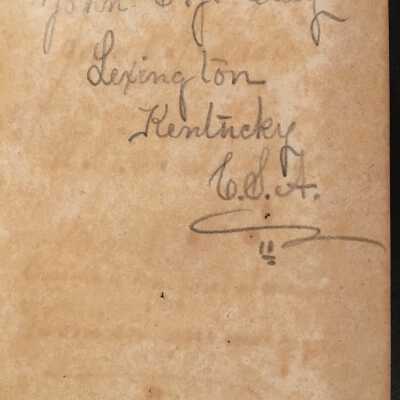 John
Lexington
Kentucky
C.S.A.